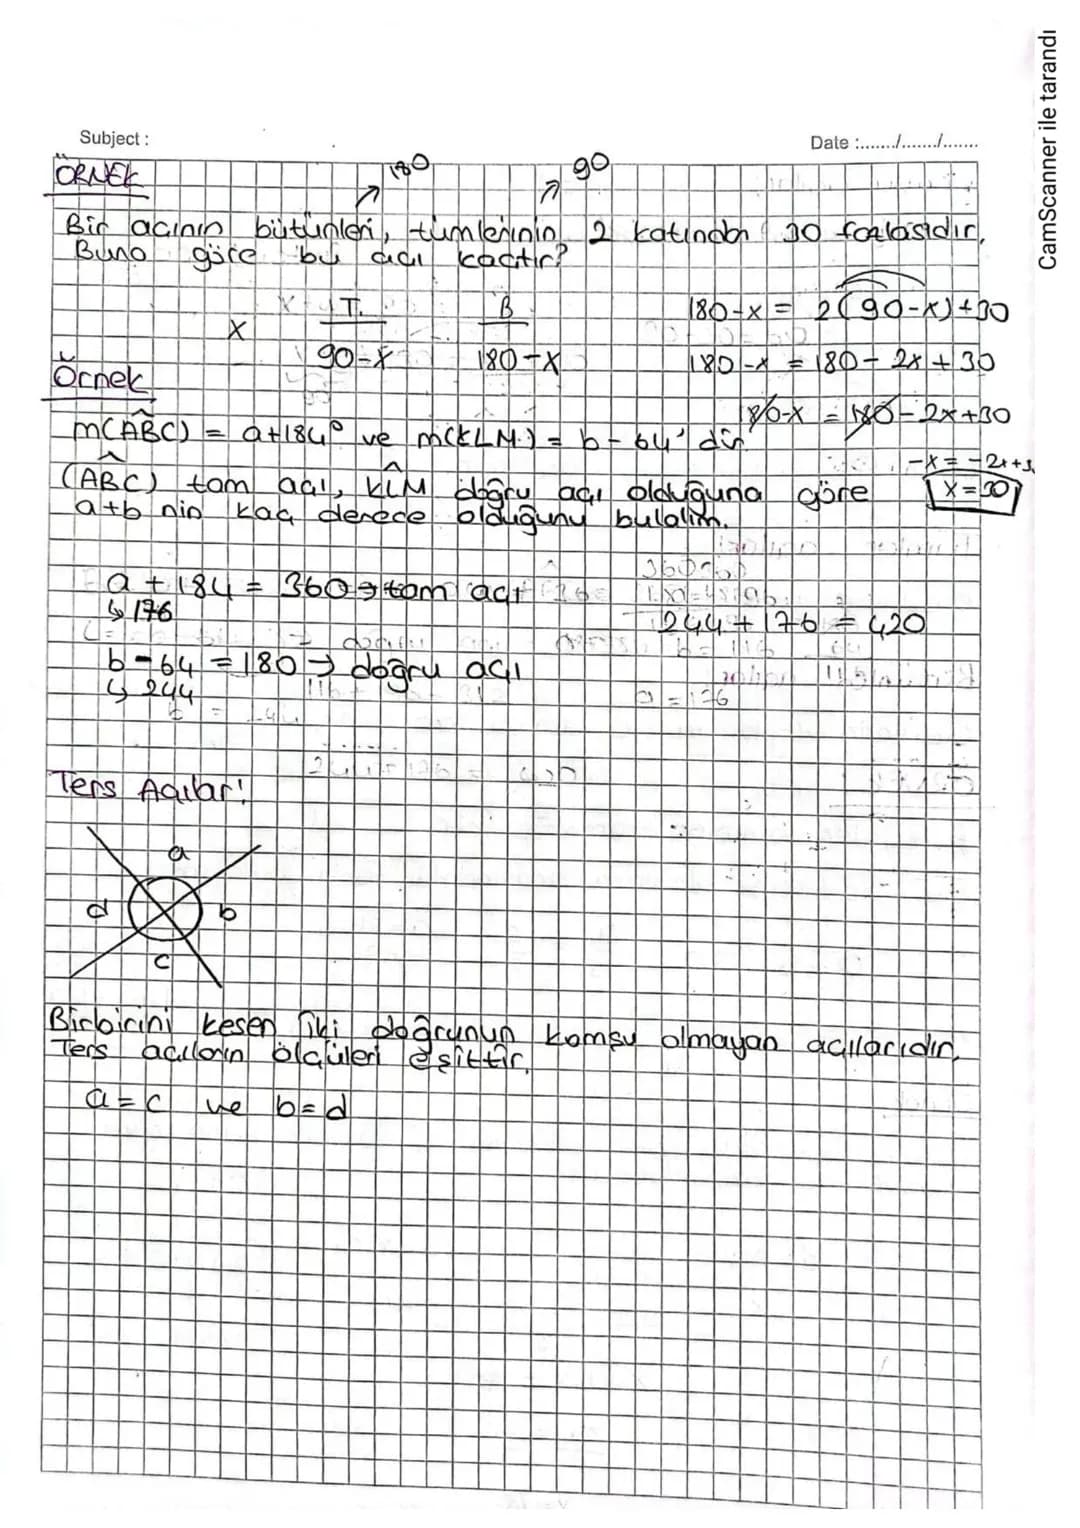 CamScanner ile tarandı
Subject :
Date :......./......./.......
ÖRNEK
180
90
Bir açının bütünleri, tümlerinin 2 katından 30 fazlasıdır.
Buna göre bu açı kaçtır?
x
T.
90-x
B
180-x
180-x = 2(90-x)+30
180-x = 180-2x+30
180-x = 180-2x+30
-x = -2x+3
x=30
Örnek
m(ABC) = a+184° ve m(KLM) = b-64' dür
(ABC) tam açı, KLM doğru açı olduğuna göre
a+b nin kaç derece olduğunu bulalım.
a + 184 = 360 → tam açı
↳ 176
244 + 176 = 420
b-64 = 180 → doğru açı
↳ 244
Ters Açılar!
a
d
b
c
Birbirini kesen iki doğrunun komşu olmayan açılarıdır.
Ters açıların ölçüleri eşittir.
a=c ve b=d